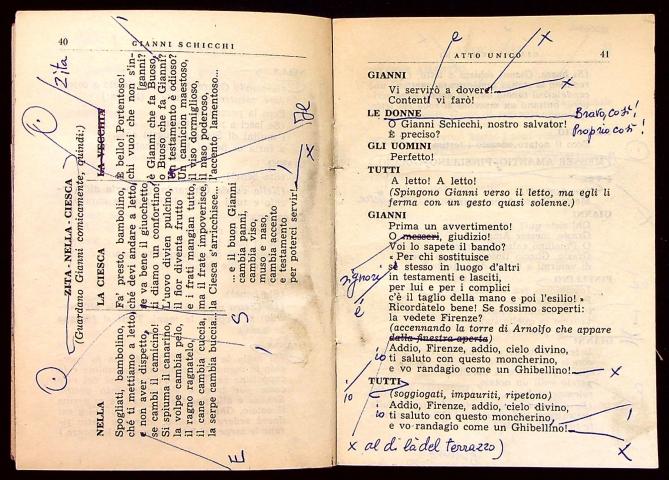 40
GIANNI SCHICCHI
ZITA - NELLA - CIESCA
(Guardano Gianni comicamente, quindi:)
Zita
NELLA
Spogliati, bambolino,
ché ti mettiamo a letto,
e non aver dispetto,
se cambi il camicino!
Si spiuma il canarino,
la volpe cambia pelo,
il ragno ragnatelo,
il cane cambia cuccia,
la serpe cambia buccia...
LA CIESCA
Fa' presto, bambolino,
ché devi andare a letto,
se va bene il giuochetto
ti diamo un confortino!
L'uovo divien pulcino,
il fior diventa frutto
e i frati mangian tutto,
ma il frate impoverisce,
la Ciesca s'arricchisce...
LA VECCHIA
È bello! Portentoso!
chi vuoi che non s'in-
[ganni?
è Gianni che fa Buoso,
o Buoso che fa Gianni?
Un testamento è odioso?
Un camicion maestoso,
il viso dormiglioso,
il naso poderoso,
l'accento lamentoso...
... e il buon Gianni
cambia panni,
cambia viso,
muso e naso,
cambia accento
e testamento
per poterci servir!
x
E
S
ATTO UNICO
41
e
x
GIANNI
Vi servirò a dovere!
x
Contenti vi farò!
LE DONNE
Bravo, così!
O Gianni Schicchi, nostro salvator!
È preciso?
Proprio così!
GLI UOMINI
Perfetto!
TUTTI
A letto! A letto!
(Spingono Gianni verso il letto, ma egli li
ferma con un gesto quasi solenne.)
GIANNI
Prima un avvertimento!
O messeri, giudizio!
signori
Voi lo sapete il bando?
« Per chi sostituisce
sé stesso in luogo d'altri
in testamenti e lasciti,
per lui e per i complici
è
c'è il taglio della mano e poi l'esilio! »
Ricordatelo bene! Se fossimo scoperti:
la vedete Firenze?
(accennando la torre di Arnolfo che appare
dalla finestra aperta)
Addio, Firenze, addio, cielo divino,
io
ti saluto con questo moncherino,
e vo randagio come un Ghibellino!
x
TUTTI
(soggiogati, impauriti, ripetono)
io
Addio, Firenze, addio, cielo divino,
io
ti saluto con questo moncherino,
e vo randagio come un Ghibellino!
x
x al di là del terrazzo)